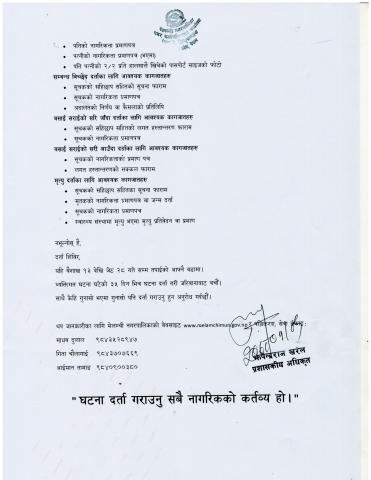 • पतिको नागरिकता प्रमाणपत्र
• पत्नीको नागरिकता प्रमाणपत्र (भएमा)
• पति पत्नीको २/२ प्रति हालसालै खिचेको पासपोर्ट साइजको फोटो
सम्बन्ध विच्छेद दर्ताका लागि आवश्यक कागजातहरु
• सूचकको सहिछाप सहितको सूचना फाराम
• सूचकको नागरिकता प्रमाणपत्र
• अदालतको निर्णय वा फैसलाको प्रतिलिपि
बसाई सराईको सरि जाँदा दर्ताका लागि आवश्यक कागजातहरु
• सूचकको सहिछाप सहितको लगत हस्तान्तरण फाराम
• सूचकको नागरिकता प्रमाणपत्र
बसाई सराईको सरी आउँदा दर्ताका लागि आवश्यक कागजातहरु
• सूचकको नागरिकताको प्रमाण पत्र
• लगत हस्तान्तरणको सक्कल फाराम
मृत्यु दर्ताका लागि आवश्यक कागजातहरु
• सूचकको सहिछाप सहितका सूचना फाराम
• मृतकको नागरिकता प्रमाणपत्र वा जन्म दर्ता
• सूचकको नागरिकता प्रमाणपत्र
• स्वास्थ्य संस्थामा मृत्यु भएमा मृत्यु प्रतिवेदन वा प्रमाण
नभुल्नोस् है,
दर्ता शिविर,
यहि बैशाख १३ देखि जेठ २८ गते सम्म तपाईको आफ्नै वडामा।
व्यक्तिगत घटना घटेको ३५ दिन भित्र घटना दर्ता गरी जरिवानाबाट बचौं।
साथै केहि गुनासो भएमा गुनासो पनि दर्ता गराउनु हुन अनुरोध गर्दछौं।
थप जानकारीका लागि मेलम्ची नगरपालिकाको वेवसाइट www.melamchimun.gov.np
माधव दुलाल ९८४३५२८९४७
गिता चौलागाई ९८४३७०७६६९
आईमान तामाङ ९८४०९००३८०
खरेल
प्रशासकीय अधिकृत
"घटना दर्ता गराउनु सबै नागरिकको कर्तव्य हो।"